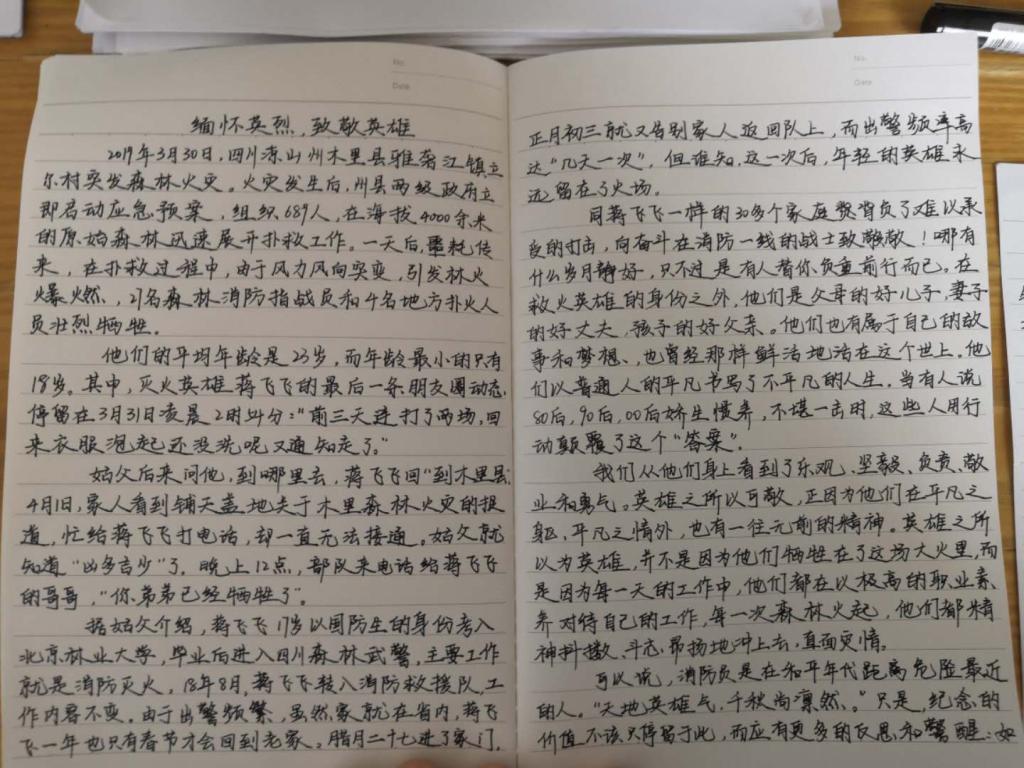 No.
Date
缅怀英烈，致敬英雄
2019年3月30日，四川凉山州木里县雅砻江镇立
尔村突发森林火灾。火灾发生后，州县两级政府立
即启动应急预案，组织689人，在海拔4000余米
的原始森林迅速展开扑救工作。一天后，噩耗传
来，在扑救过程中，由于风力风向突变，引发林火
爆燃，27名森林消防指战员和4名地方扑火人
员壮烈牺牲。
他们的平均年龄是23岁，而年龄最小的只有
18岁。其中，灭火英雄蒋飞飞的最后一条朋友圈动态，
停留在3月31日凌晨2时44分："前三天连打了两场，回
来衣服泡起还没洗呢又通知走了。"
姑父后来问他，到哪里去，蒋飞飞回"到木里县。
4月1日，家人看到铺天盖地关于木里森林火灾的报
道，忙给蒋飞飞打电话，却一直无法接通。姑父就
知道"凶多吉少"了。晚上12点，部队来电话给蒋飞飞
的哥哥，"你弟弟已经牺牲了"。
据姑父介绍，蒋飞飞17岁以国防生的身份考入
北京林业大学，毕业后进入四川森林武警，主要工作
就是消防灭火。18年8月，蒋飞飞转入消防救援队，工
作内容不变。由于出警频繁，虽然家就在省内，蒋飞
飞一年也只有春节才会回到老家。腊月二十七进了家门，
No.
Date
正月初三就又告别家人返回队上，而出警频率高
达"几天一次"，但谁知，这一次后，年轻的英雄永
远留在了火场。
同蒋飞飞一样的30多个家庭背负了难以承
受的打击，向奋斗在消防一线的战士致敬！哪有
什么岁月静好，只不过是有人替你负重前行而已。在
救火英雄的身份之外，他们是父母的好儿子，妻子
的好丈夫，孩子的好父亲。他们也有属于自己的故
事和梦想、也曾经那样鲜活地活在这个世上。他
们以普通人的平凡书写了不平凡的人生，当有人说
80后，90后，00后娇生惯养，不堪一击时，这些人用行
动颠覆了这个"答案"。
我们从他们身上看到了乐观、坚毅、负责、敬
业和勇气。英雄之所以可敬，正因为他们在平凡之
躯，平凡之情外，也有一往无前的精神。英雄之所
以为英雄，并不是因为他们牺牲在了这场大火里，而
是因为每一天的工作中，他们都在以极高的职业素
养对待自己的工作，每一次森林火起，他们都精
神抖擞、斗志昂扬地冲上去，直面灾情。
可以说，消防员是在和平年代距离危险最近
的人。"天地英雄气，千秋尚凛然。"只是，纪念的
价值不该只停留于此，而应有更多的反思和警醒：如